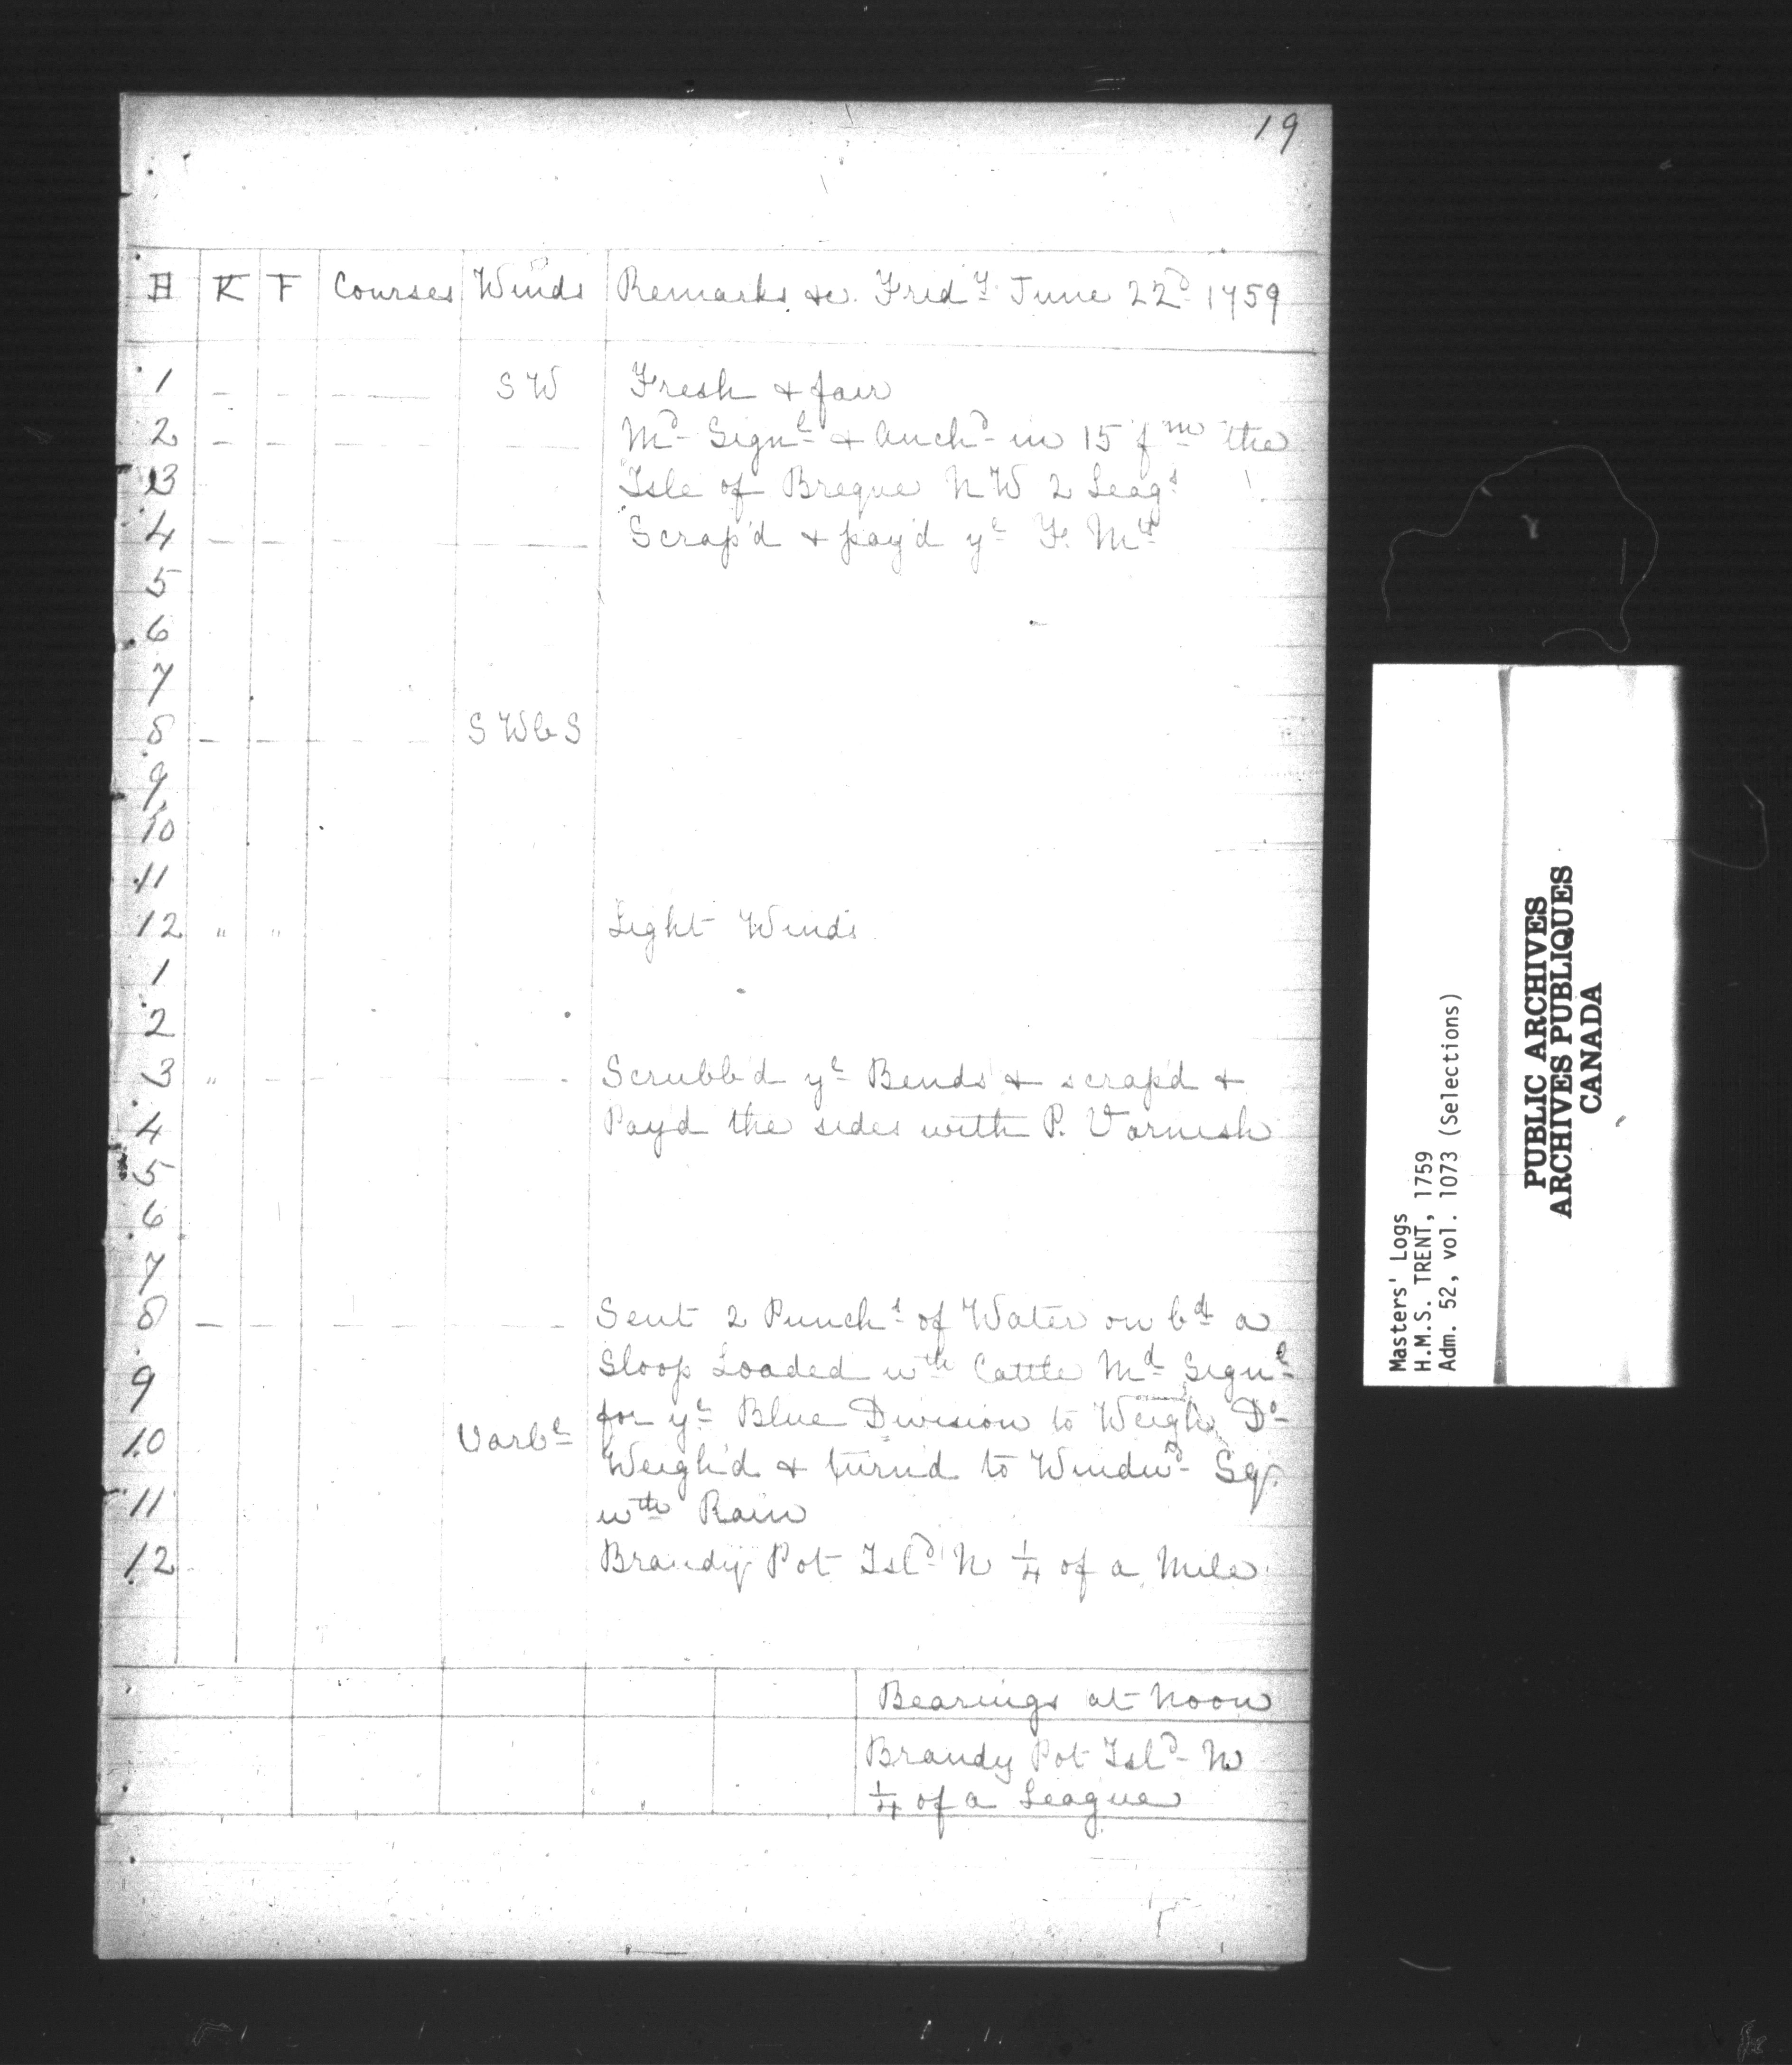 19
H K F Courses Winds Remarks &c. Frid.y June 22d 1759
1 - - - - SW Fresh & fair
2 - - - - - Md Signl & Anchd in 15 fm the
3 Isle of Breque NW 2 Leags
4 - - - - - Scrap'd & pay'd ye F. Mt
5
6
7
8 - - - - SWbS
9
10
11
12 " " Light Winds
1
2
3 " - - - - Scrubb'd ye Bends & scrap'd &
4 Pay'd the sides with P. Varnish
5
6
7
8 - - - - - Sent 2 Punchs of Water on bd a
Sloop Loaded wth Cattle Md Signl
9
for ye Blue Division to Weigh Do
10 Varbe
Weigh'd & turn'd to Windwd Sq.
11 wth Rain
12 Brandy Pot Isld N 1/4 of a Mile
Bearings at Noon
Brandy Pot Isld N
1/4 of a League
Masters' Logs
H.M.S. TRENT, 1759
Adm. 52, vol. 1073 (Selections)
PUBLIC ARCHIVES
ARCHIVES PUBLIQUES
CANADA